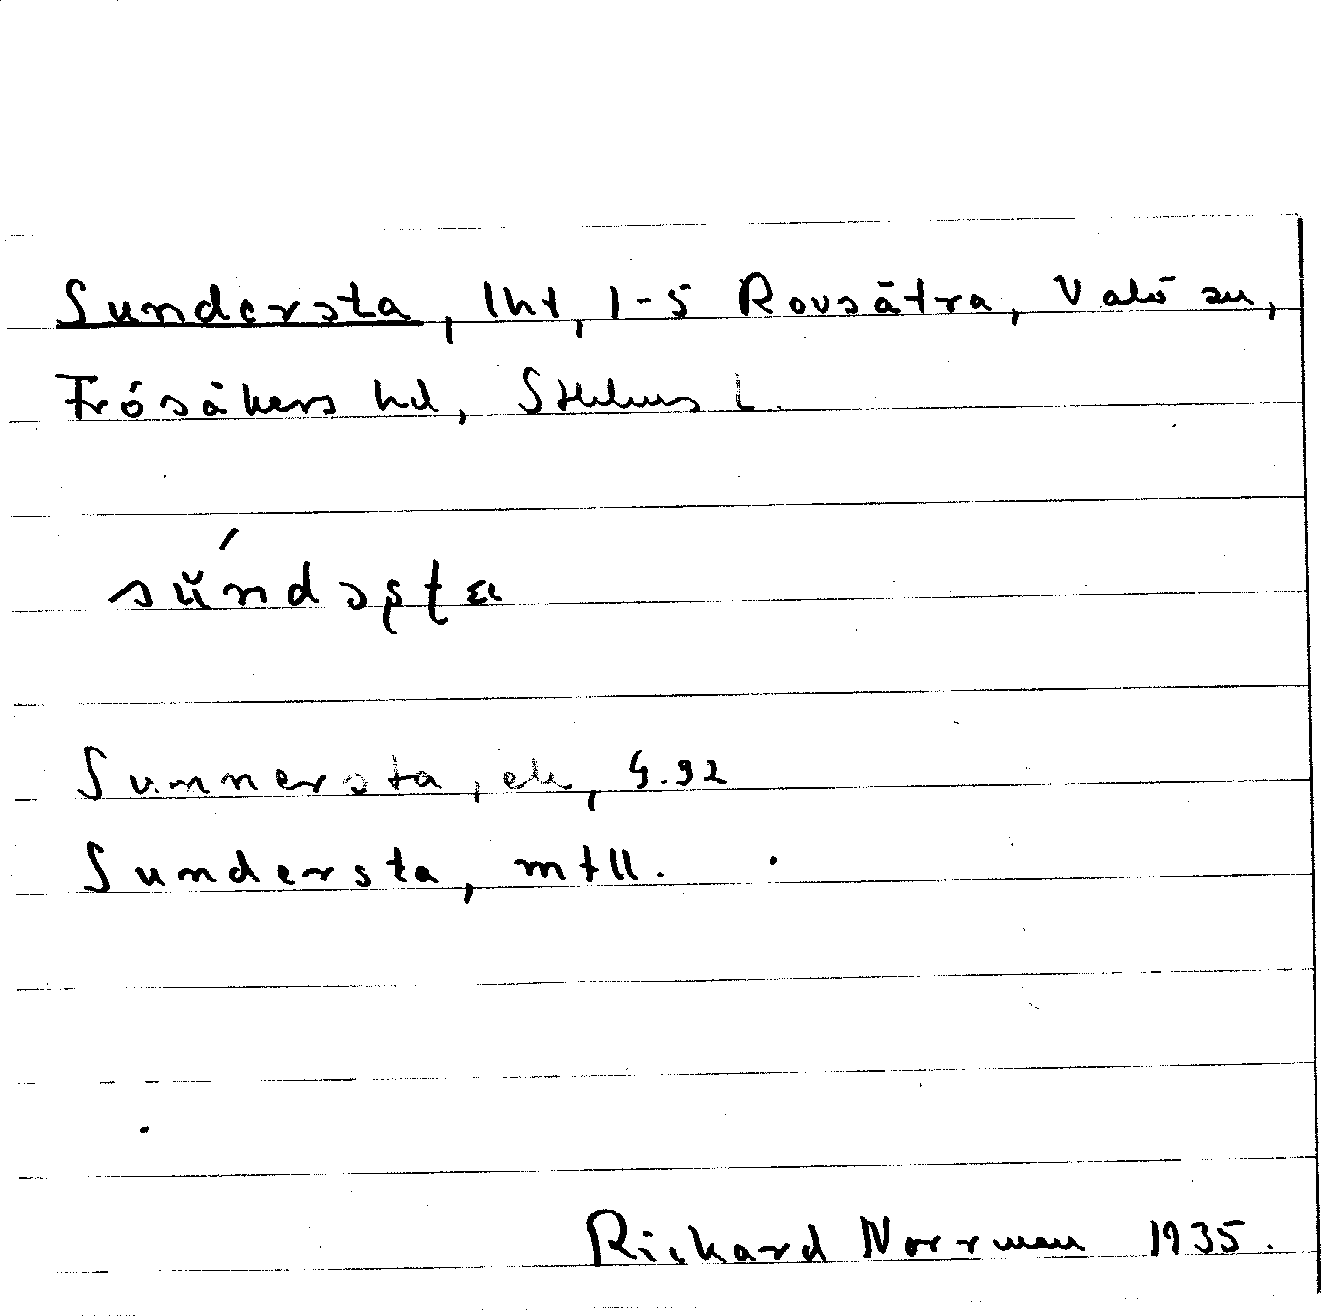 Sundersta, lht, 1-5 Rovsätra, Valö sn,
Frösåkers hd, Sthlms L.
Sunnersta, ek, 4.92
Sundersta, mtll.
Rickard Norrman 1935.